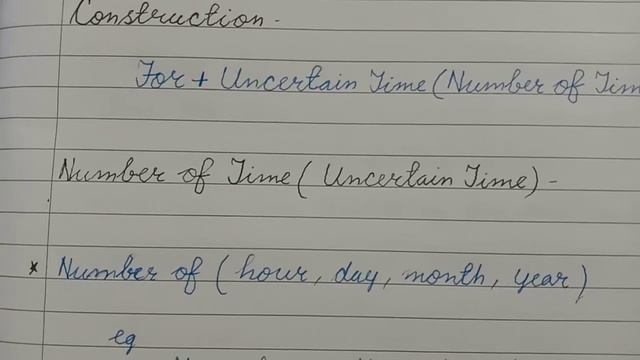 Construction -
For + Uncertain Time (Number of Tim
Number of Time (Uncertain Time) -
* Number of (hour, day, month, year)
eg